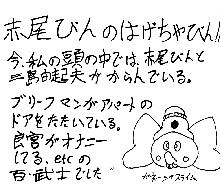 赤尾びんのはげちゃびん!!
今、私の頭の中では、赤尾びんと
三島由起夫がからんでいる。
ブリーフマンがアパートの
ドアをたたいている。
良寛がオナニー
してる、etc の
百武士でした